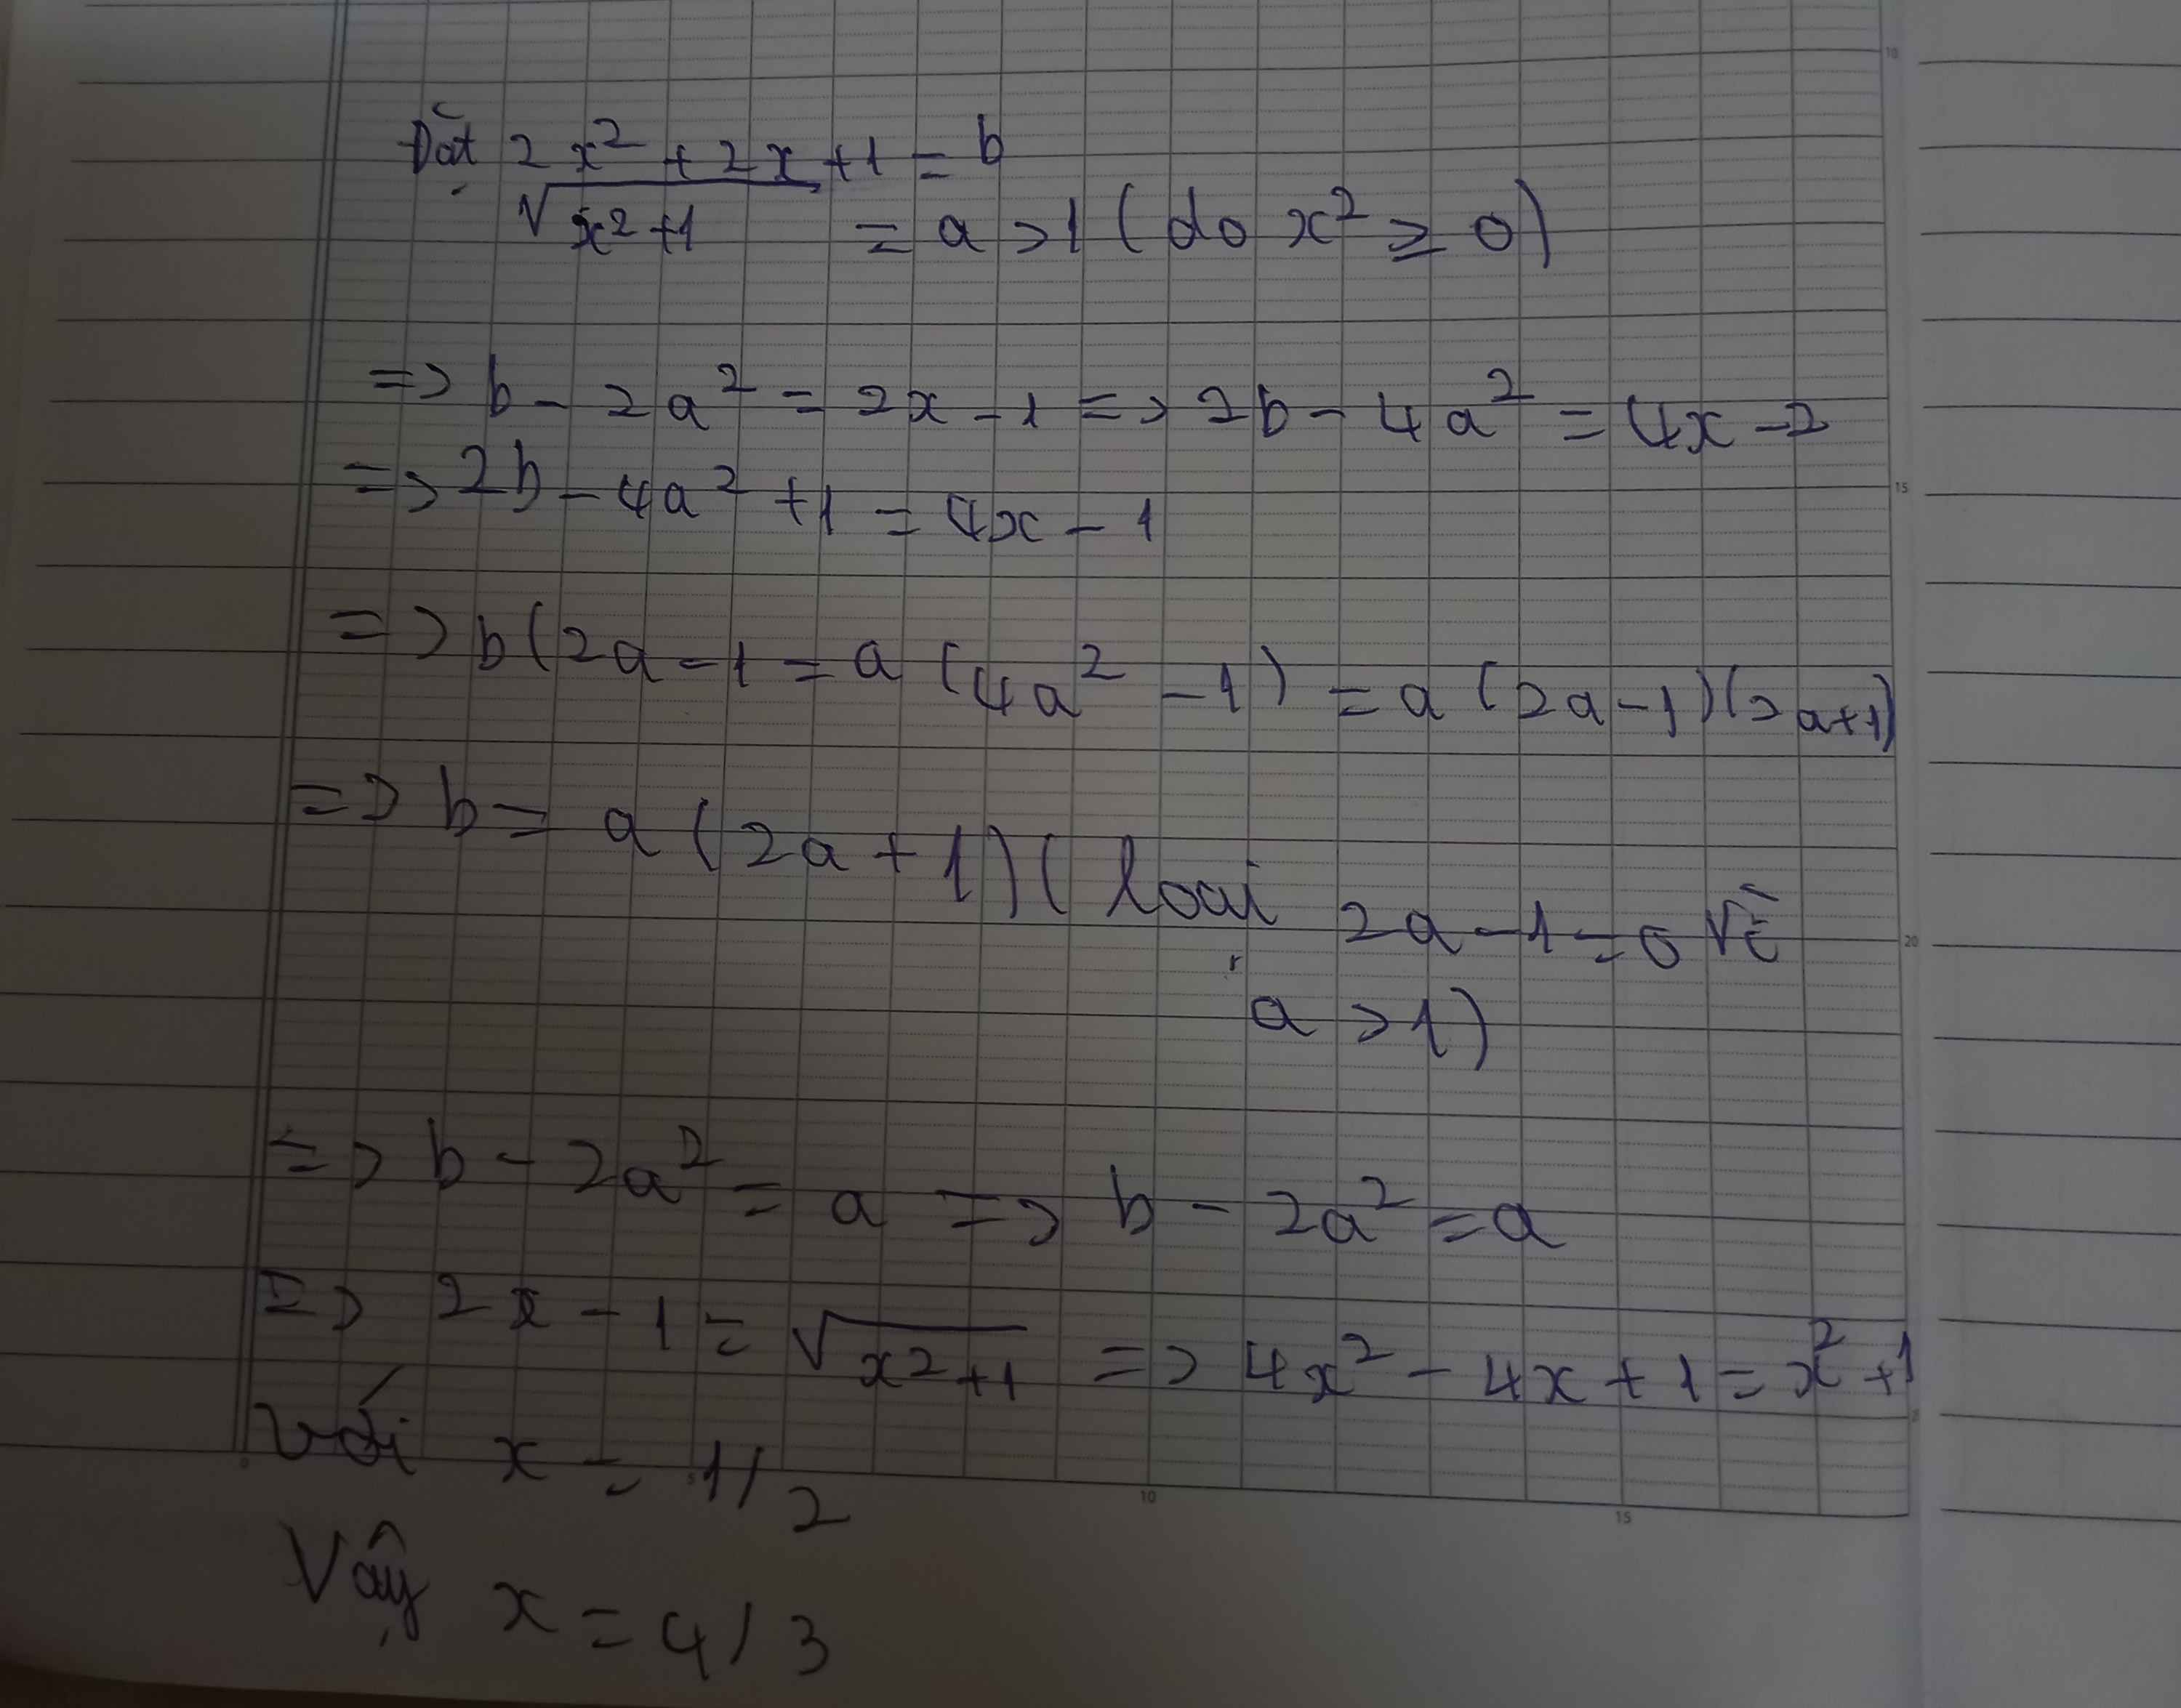 Đặt 2x² + 2x + 1 = b
√x²+1 = a > 1 (do x² ≥ 0)
=> b - 2a² = 2x - 1 => 2b - 4a² = 4x - 2
=> 2b - 4a² + 1 = 4x - 1
=> b(2a - 1 = a (4a² - 1) = a (2a - 1)(2a+1)
=> b = a (2a + 1) (loai 2a - 1 = 0 vì
a > 1)
=> b - 2a² = a => b - 2a² = a
=> 2x - 1 = √x²+1 => 4x² - 4x + 1 = x² + 1
Với x = 1/2
Vậy x = 4/3
10
15
20
0
5
10
15